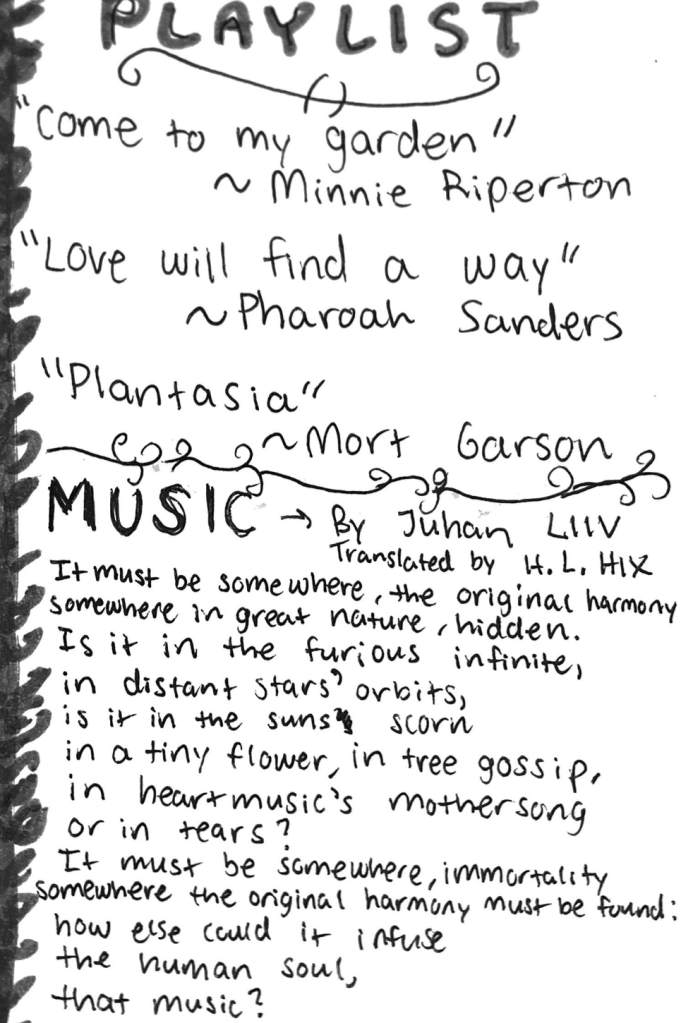 PLAYLIST
"Come to my garden"
~ Minnie Riperton
"Love will find a way"
~Pharoah Sanders
"Plantasia"
~Mort Garson
MUSIC → By Juhan LIIV
Translated by H. L. HIX
It must be somewhere, the original harmony
somewhere in great nature, hidden.
Is it in the furious infinite,
in distant stars' orbits,
is it in the suns scorn
in a tiny flower, in tree gossip,
in heartmusic's mothersong
or in tears?
It must be somewhere, immortality
somewhere the original harmony must be found:
how else could it infuse
the human soul,
that music?